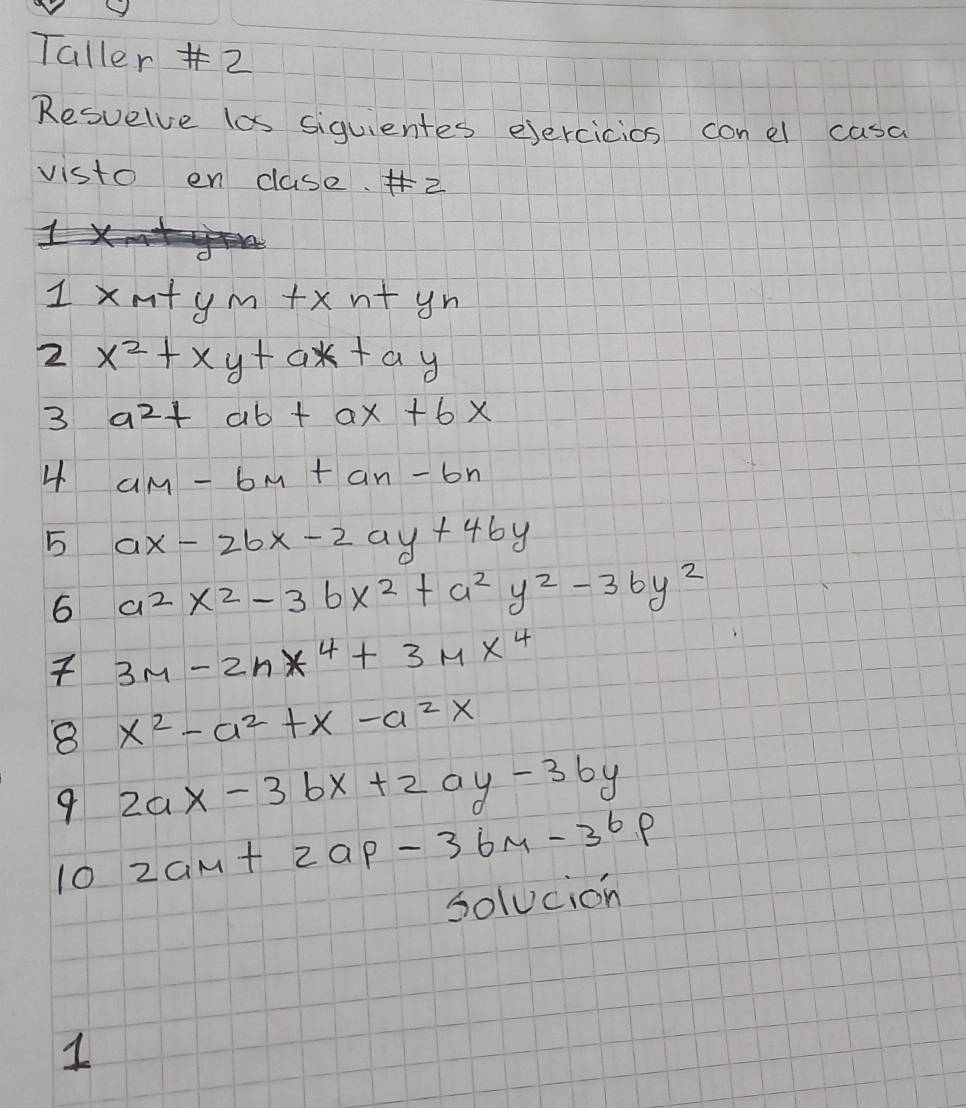 Taller #2
Resuelve los siguientes ejercicios con el casa
visto en clase. #2
1 xm+ym+xn+yn
2 x²+xy+ax+ay
3 a²+ab+ax+bx
4 am-bm+an-bn
5 ax-2bx-2ay+4by
6 a²x²-3bx²+a²y²-3by²
7 3m-2nx⁴+3mx⁴
8 x²-a²+x-a²x
9 2ax-3bx+2ay-3by
10 2am+2ap-3bm-3bp
solución
1